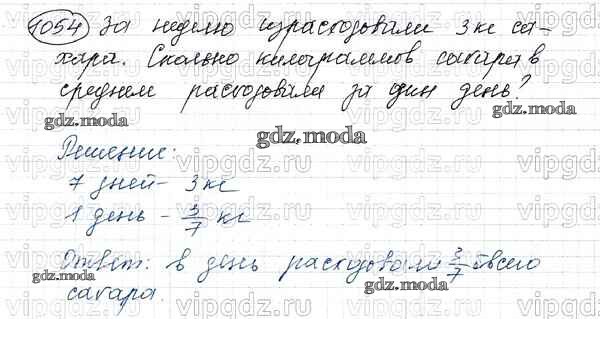 1054 За неделю израсходовали 3 кг са-
хара. Сколько килограммов сахара в
среднем расходовали за один день?
gdz.moda
gdz.moda
Решение:
7 дней - 3 кг
1 день - 3/7 кг
gdz.moda
Ответ: в день расходовали 3/7 всего
gdz.moda
gdz.moda
сахара.
vipgdz.ru